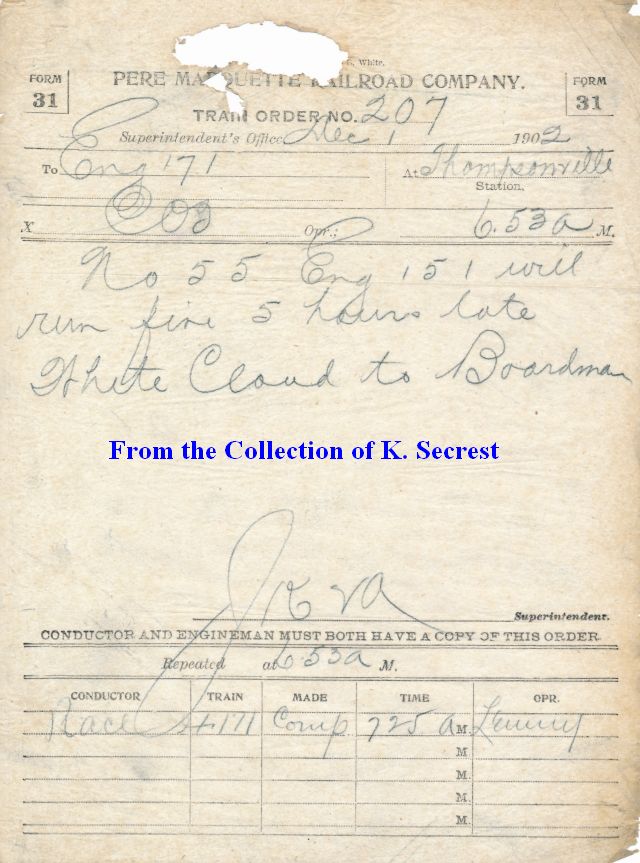 White.
FORM 31 PERE MARQUETTE RAILROAD COMPANY. FORM 31
TRAIN ORDER NO. 207
Superintendent's Office Dec 1 1902
To Eng 171 At Thompsonville Station.
X C03 Opr.; 6.53a M.
No 55 Eng 151 will
run five 5 hours late
White Cloud to Boardman
From the Collection of K. Secrest
Superintendent.
CONDUCTOR AND ENGINEMAN MUST BOTH HAVE A COPY OF THIS ORDER.
Repeated at 6 53a M.
CONDUCTOR TRAIN MADE TIME OPR.
Race 171 Comp 725 a M.
M.
M.
M.
M.